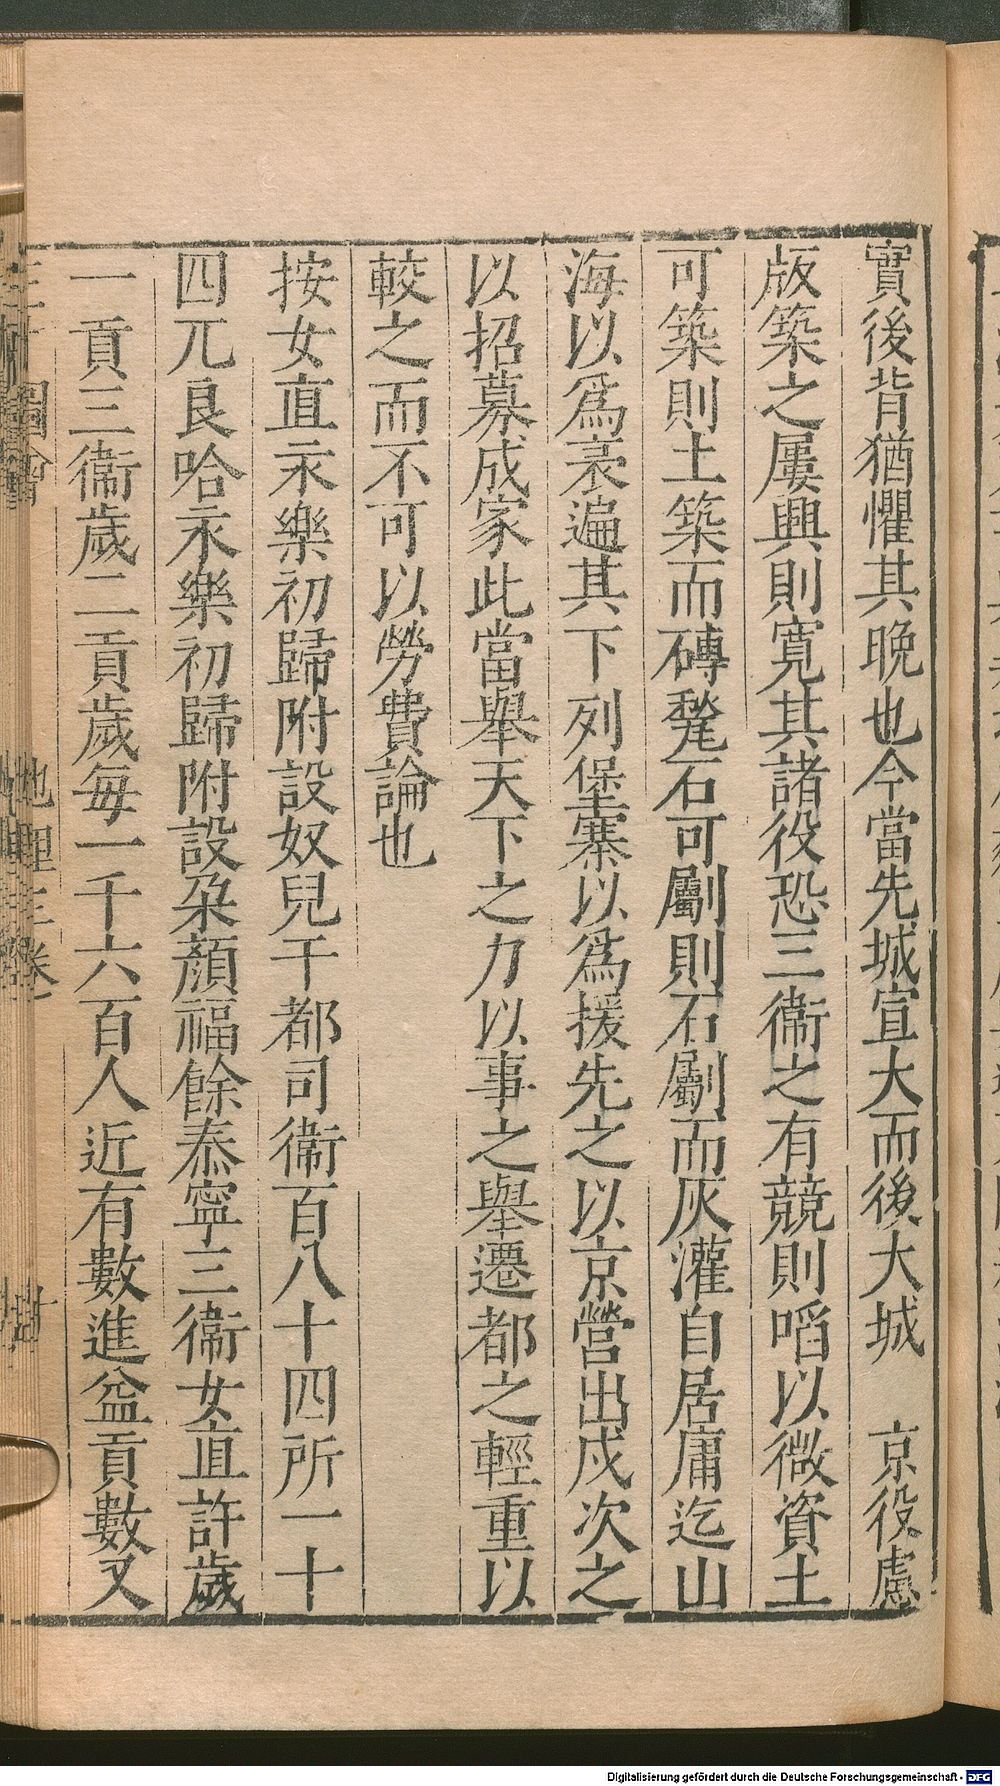 實後背猶懼其晚也今當先城宣大而後大城　京役慮
版築之屢興則寬其諸役恐三衞之有競則啗以微資土
可築則土築而磚甃石可劚則石劚而灰灌自居庸迄山
海以爲袤遍其下列堡寨以爲援先之以京營出戍次之
以招募成家此當舉天下之力以事之舉遷都之輕重以
較之而不可以勞費論也
按女直永樂初歸附設奴兒干都司衞百八十四所一十
四兀良哈永樂初歸附設朶顏福餘泰寧三衞女直許歲
一貢三衞歲二貢歲每一千六百人近有數進益貢數又
圖會　地理三卷　十
Digitalisierung gefördert durch die Deutsche Forschungsgemeinschaft - DFG